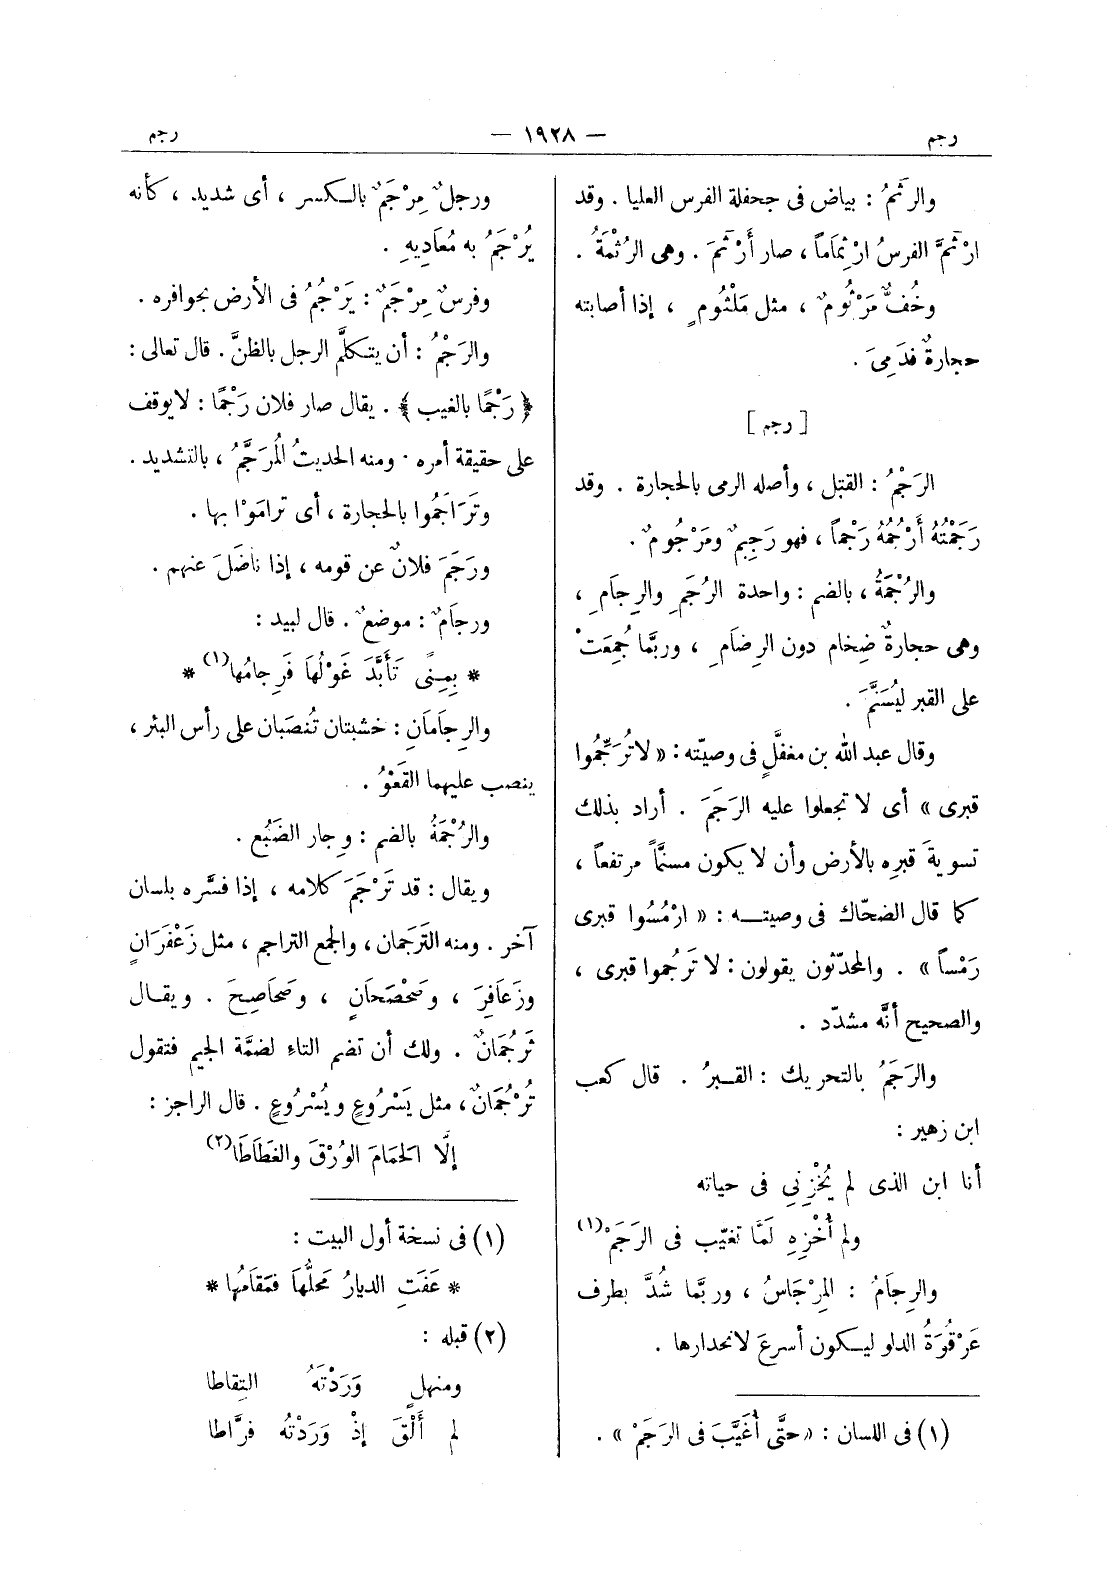 رجم — ١٩٢٨ — رجم
والرَثَمُ : بياض فى جحفلة الفرس العليا . وقد
ارْثَمَّ الفرسُ ارْثِمَاماً ، صار أَرْثَمَ . وهى الرُثْمَةُ .
وخُفٌّ مَرْثُومٌ ، مثل مَلْثُومٍ ، إذا أصابته
حجارةٌ فدَمِىَ .
[ رجم ]
الرَجْمُ : القتل ، وأصله الرمى بالحجارة . وقد
رَجَمْتُهُ أَرْجُمُهُ رَجْماً ، فهو رَجِيمٌ ومَرْجُومٌ .
والرُجْمَةُ ، بالضم : واحدة الرُجَمِ والرِجاَمِ ،
وهى حجارةٌ ضِخام دون الرِضاَمِ ، وربَّما جُمِعَتْ
على القبر ليُسَنَّمَ .
وقال عبد الله بن مغفَّلٍ فى وصيّته : « لا تُرَجِّمُوا
قبرى » أى لا تجعلوا عليه الرَجَمَ . أراد بذلك
تسويةَ قبرِه بالأرض وأن لا يكون مسنَّماً مرتفعاً ،
كما قال الضحّاك فى وصيته : « ارْمُسُوا قبرى
رَمْساً » . والمحدّثون يقولون : لا تَرْجُموا قبرى ،
والصحيح أنَّه مشدّد .
والرَجَمُ بالتحريك : القبرُ . قال كعب
ابن زهير :
أنا ابن الذى لم يُخْزِنِى فى حياته
ولم أُخْزِهِ لَمَّا تغيّب فى الرَجَمْ (١)
والرِجاَمُ : المِرْجَاسُ ، وربَّما شُدَّ بطرف
عَرْقُوَةُ الدلو ليكون أسرعَ لانحدارها .
(١) فى اللسان : « حتَّى أُغَيَّبَ فى الرَجَمْ » .
ورجلٌ مِرْجَمٌ بالكسر ، أى شديد ، كأنه
يُرْجَمُ به مُعَادِيهِ .
وفرسٌ مِرْجَمٌ : يَرْجُمُ فى الأرض بحوافره .
والرَجْمُ : أن يتكلَّم الرجل بالظنّ . قال تعالى :
﴿ رَجْمًا بالغيب ﴾ . يقال صار فلان رَجْمًا : لا يوقف
على حقيقة أمره . ومنه الحديثُ المُرَجَّمُ ، بالتشديد .
وتَرَاجَمُوا بالحجارة ، أى ترامَوْا بها .
ورَجَمَ فلانٌ عن قومه ، إذا ناضَلَ عنهم .
ورجاَمٌ : موضعٌ . قال لبيد :
* بِمِنًى تَأَبَّدَ غَوْلُهَا فَرِجامُها (١) *
والرِجاَمَانِ : خشبتان تُنصَبان على رأس البئر ،
ينصب عليهما القَعْوُ .
والرُجْمَةُ بالضم : وِجار الضَبُع .
ويقال : قد تَرْجَمَ كلامه ، إذا فسَّره بلسان
آخر . ومنه التَرَجَمان ، والجمع التراجم ، مثل زَعْفَرَانٍ
وزَعَافِرَ ، وصَحْصَحَانٍ ، وصَحَاصِحَ . ويقال
تَرْجُمَانٌ . ولك أن تضم التاء لضمَّة الجيم فتقول
تُرْجُمَانٌ ، مثل يَسْرُوعٍ ويُسْرُوعٍ . قال الراجز :
إلَّا الحَمَامَ الوُرْقَ والغَطَاطَا (٢)
(١) فى نسخة أول البيت :
* عَفَتِ الديارُ مَحلُّهَا فمَقَامُها *
(٢) قبله :
ومنهلٍ وَرَدْتَهُ التِقاطا
لم أَلْقَ إذْ وَرَدْتُه فرَّاطا